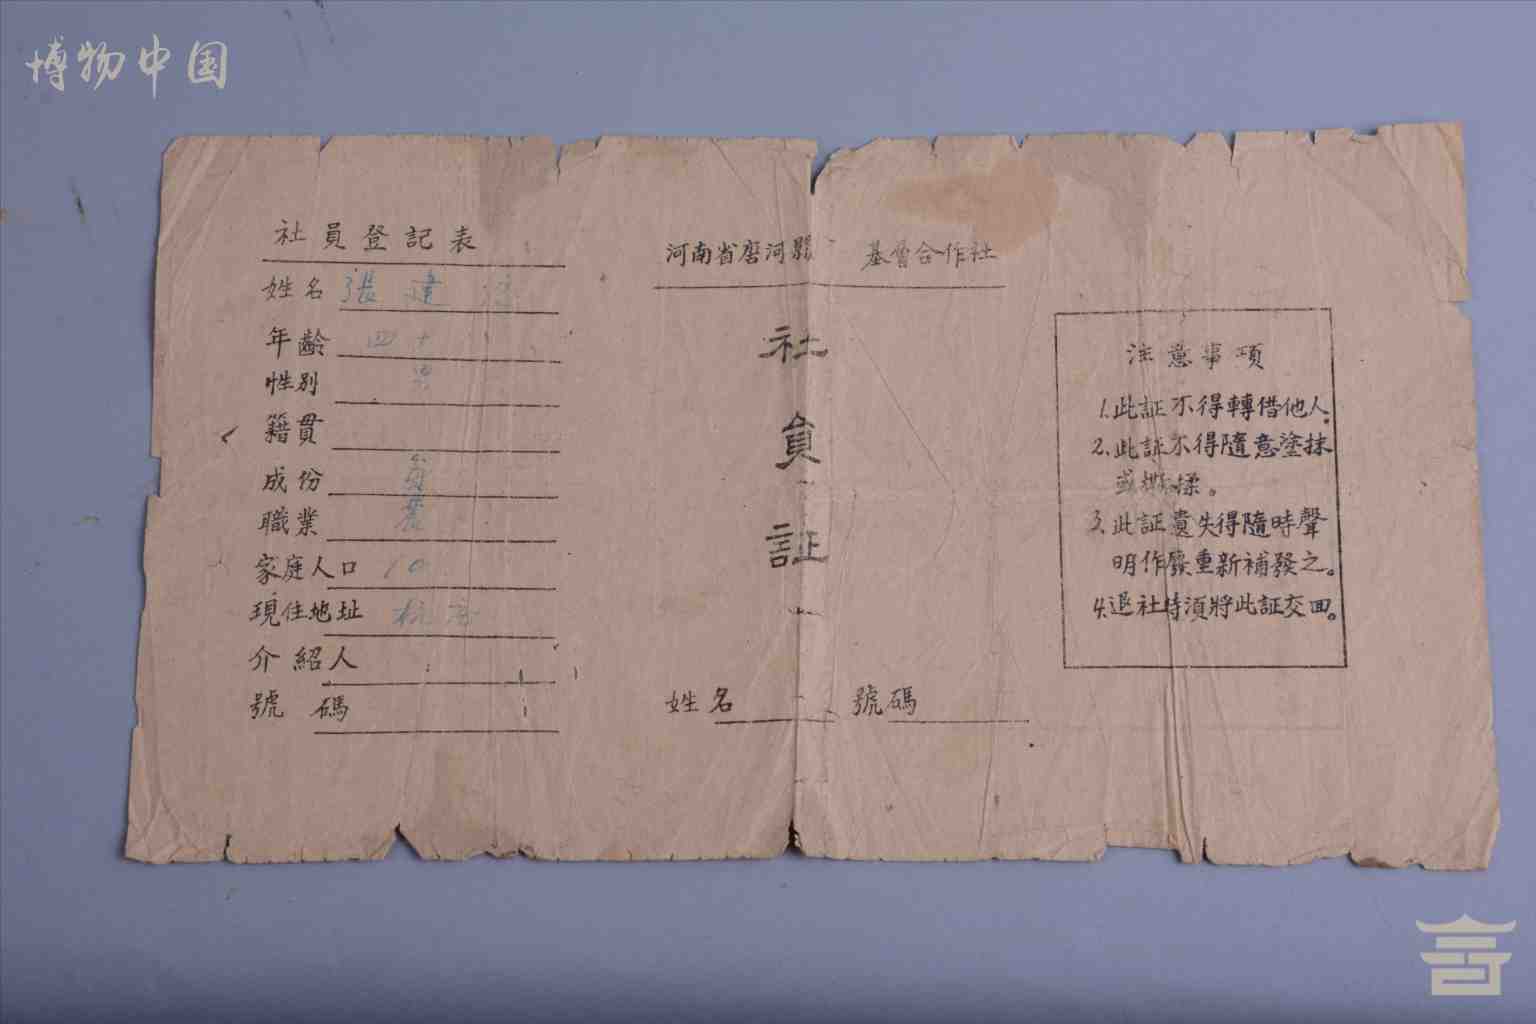 博物中国
社員登記表
姓名 張建
年齡 四十
性別 男
籍貫
成份 貧
職業 農
家庭人口 10
現住地址
介紹人
號碼
河南省唐河縣 基層合作社
社員証
姓名 號碼
注意事項
1.此証不得轉借他人.
2.此証不得隨意塗抹
或撕揉。
3.此証遺失得隨時聲
明作廢重新補發之。
4.退社時須將此証交回。